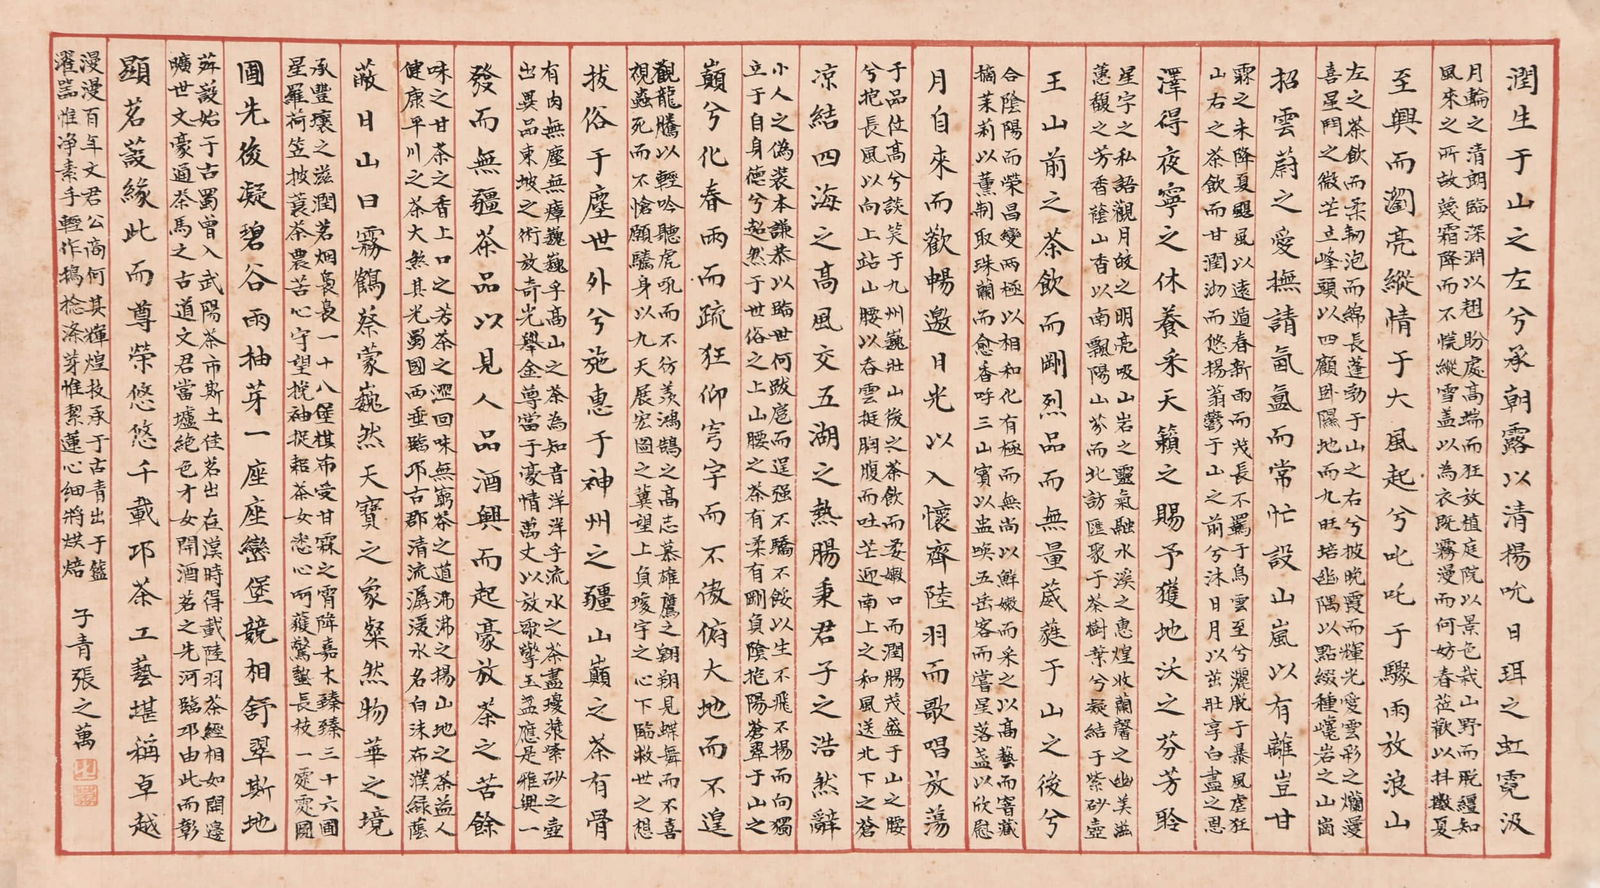 潤生于山之左兮承朝露以清揚吮日珥之虹霓汲
月輪之清朗臨深淵以翘盼處高端而狂放植庭院以景色栽山野而脱繮知
風來之所故蔑霜降而不慌縱雪盖以為衣既霧漫而何妨春莅歡以抖擻夏
至興而瀏亮縱情于大風起兮叱吒于驟雨放浪山
左之茶飲而柔韧泡而綿長蓬勃于山之右兮披晚霞而輝光愛雲彩之爛漫
喜星鬥之微芒立峰頭以四顧卧隰地而九旺培幽隅以點綴種巉岩之山崗
招雲蔚之愛撫請氤氲而常忙設山嵐以有離豈甘
霖之未降夏颶風以遠遁春新雨而茂長不羈于烏雲至兮灑脱于暴風虐狂
山右之茶飲而甘潤沏而悠揚蓊鬱于山之前兮沐日月以茁壯享白晝之恩
澤得夜寧之休養采天籟之賜予獲地沃之芬芳聆
星宇之私語觀月皎之明亮吸山岩之靈氣融水溪之惠煌收蘭馨之幽美滋
蕙馥之芳香蔭山杳以南飄陽山芬而北訪匯聚于茶樹葉兮凝結于紫砂壺
王山前之茶飲而剛烈品而無量葳蕤于山之後兮
合陰陽而榮昌變兩極以相和化有極而無尚以鮮嫩而采之以高藝而窖藏
摘茉莉以薰制取珠蘭而愈香呼三山賓以盅喚五岳客而嘗星落盏以欣慰
月自來而歡暢邀日光以入懷齊陸羽而歌唱放蕩
于品位高兮談笑于九州巍壯山後之茶飲而柔嫩口而潤腸茂盛于山之腰
兮抱長風以向上站山腰以吞雲挺胸腹而吐芒迎南上之和風送北下之蒼
凉結四海之高風交五湖之熱腸秉君子之浩然辭
小人之偽裝本謙恭以臨世何跋扈而逞强不驕不餒以生不飛不揚而向獨
立于自身德兮超然于世俗之上山腰之茶有柔有剛負陰抱陽蒼翠于山之
巔兮化春雨而疏狂仰穹宇而不傲俯大地而不遑
觀龍騰以輕吟聽虎吼而不彷羡鴻鵠之高志慕雄鷹之翱翔見蝶舞而不喜
視蟲死而不愴願騰身以九天展宏圖之冀望上負瓊宇之心下臨救世之想
拔俗于塵世外兮施惠于神州之疆山巔之茶有骨
有肉無塵無瘴巍巍乎高山之茶為知音洋洋乎流水之茶盡瓊漿紫砂之壺
出異品東坡之術放奇光舉金尊當于豪情萬丈以放歌擎玉盃應是雅興一
發而無疆茶品以見人品酒興而起豪放茶之苦餘
味之甘茶之香上口之芳茶之澀回味無窮茶之道沸沸之揚山地之茶益人
健康平川之茶大煞其光蜀國西垂臨邛古郡清流潺湲水名白沫布濮緑蔭
蔽日山曰霧鶴蔡蒙巍然天寶之象粲然物華之境
承豐壤之滋潤茗烟裊裊一十八堡棋布受甘霖之宵降嘉木臻臻三十六圃
星羅荷笠披蓑茶農苦心守望挽袖捉裙茶女悉心呵護驚蟄長枝一處處園
圃先後凝碧谷雨抽芽一座座巒堡競相舒翠斯地
茶藝始于古蜀曾入武陽茶市斯土佳茗出在漢時得載陸羽茶經相如開邊
曠世文豪通茶馬之古道文君當壚絶色才女開酒茗之先河臨邛由此而彰
顯茗藝緣此而尊榮悠悠千載邛茶工藝堪稱卓越
漫漫百年文君公商何其輝煌技承于古青出于籃
濯器惟净素手輕作搗捻滌芽惟絜蓮心細將烘焙
子青張之萬